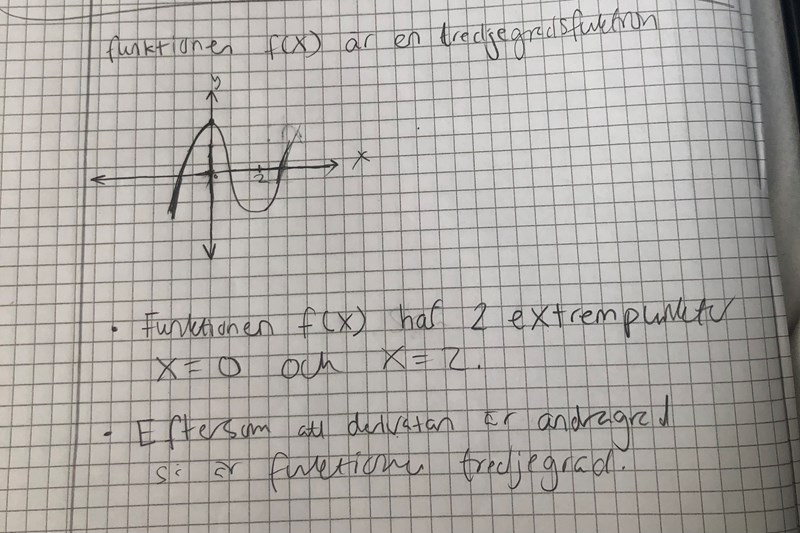 funktionen f(x) är en tredjegradsfunktion
y
x
2
Funktionen f(x) har 2 extrempunkter
x=0 och x=2.
Eftersom att derivatan är andragrad
så är funktionen tredjegrad.